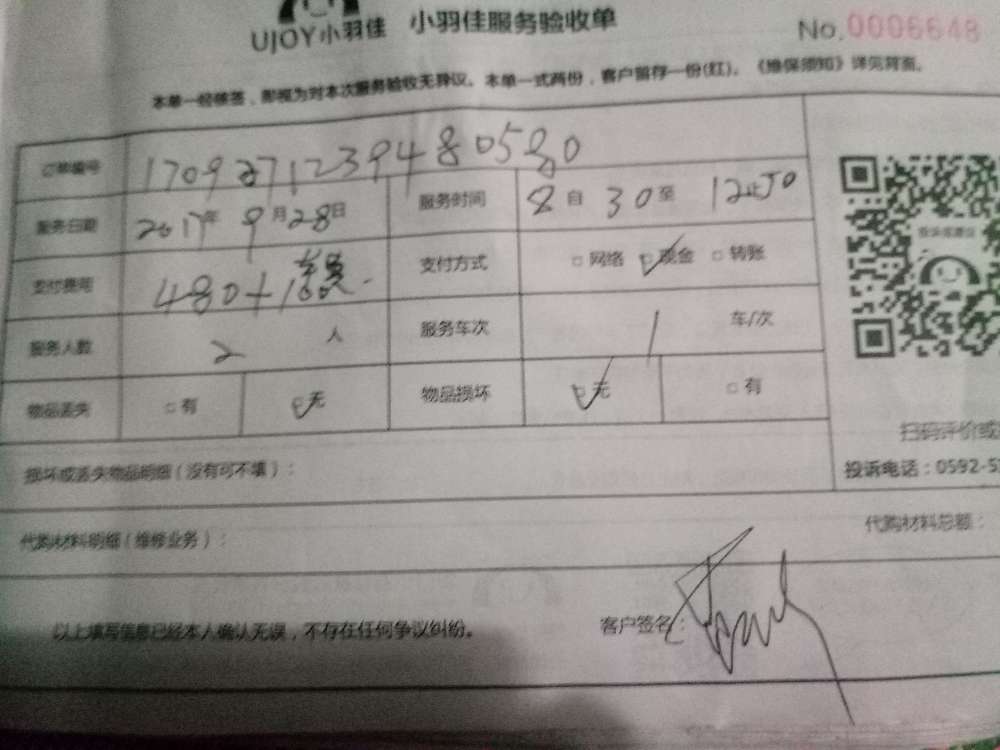 UJOY小羽佳 小羽佳服务验收单 No.0006648
本单一经核签，即视为对本次服务验收无异议。本单一式两份，客户留存一份(红)。《维保须知》详见背面。
订单编号
服务日期 2017年9月28日 服务时间 8自30至12止50
支付费用 480+ 支付方式 □网络 现金 □转账
投诉或建议
服务人数 2人 服务车次 1 车/次
物品丢失 □有 无 物品损坏 无 □有
扫码评价或
损坏或丢失物品明细（没有可不填）：
投诉电话：0592-5
代购材料明细（维修业务）： 代购材料总额：
以上填写信息已经本人确认无误，不存在任何争议纠纷。 客户签名：